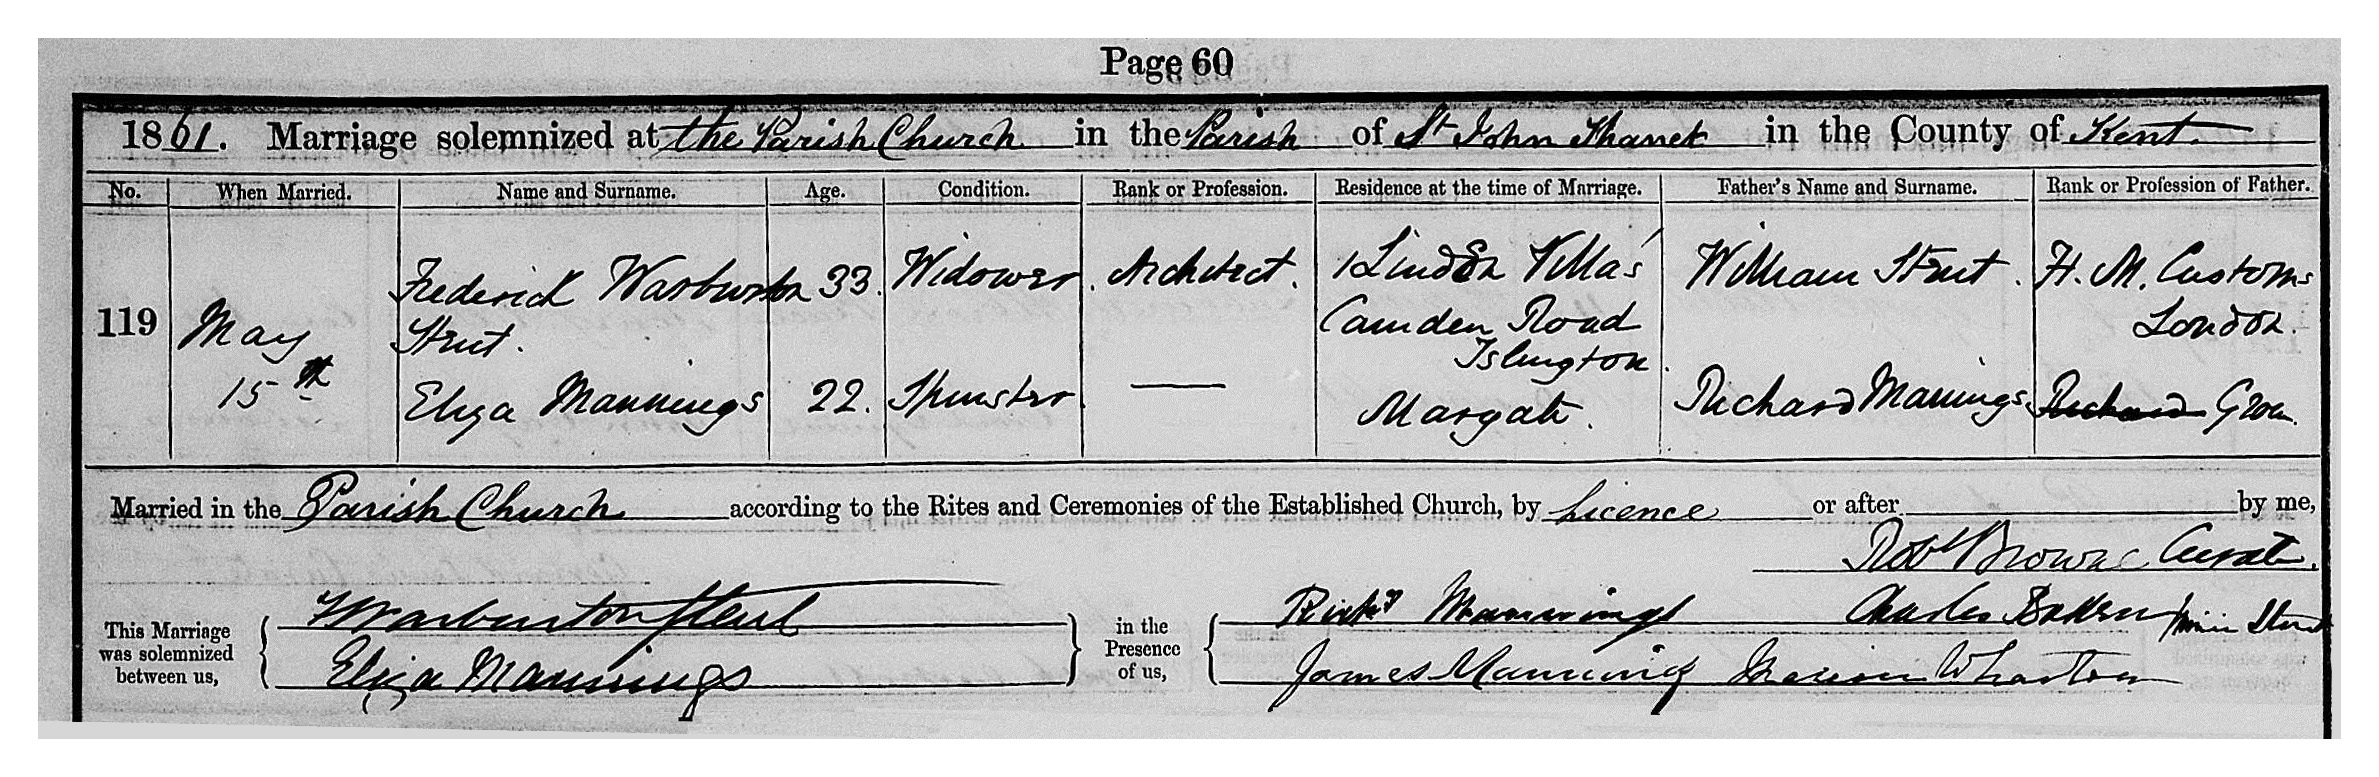 Page 60
1861. Marriage solemnized at the Parish Church in the Parish of St John Thanet in the County of Kent.
No. When Married. Name and Surname. Age. Condition. Rank or Profession. Residence at the time of Marriage. Father's Name and Surname. Rank or Profession of Father.
119 May 15th Frederick Warburton Stent. 33. Widower. Architect. 1 Linden Villas Camden Road Islington. William Stent. H. M. Customs London.
Eliza Mannings 22. Spinster. Margate. Richard Mannings Richard Grocer.
Married in the Parish Church according to the Rites and Ceremonies of the Established Church, by Licence or after by me,
Robt Browne Curate.
This Marriage was solemnized between us, Warburton Stent in the Presence of us, Richd Mannings Charles Stent
Eliza Mannings James Mannings Marion Wharton